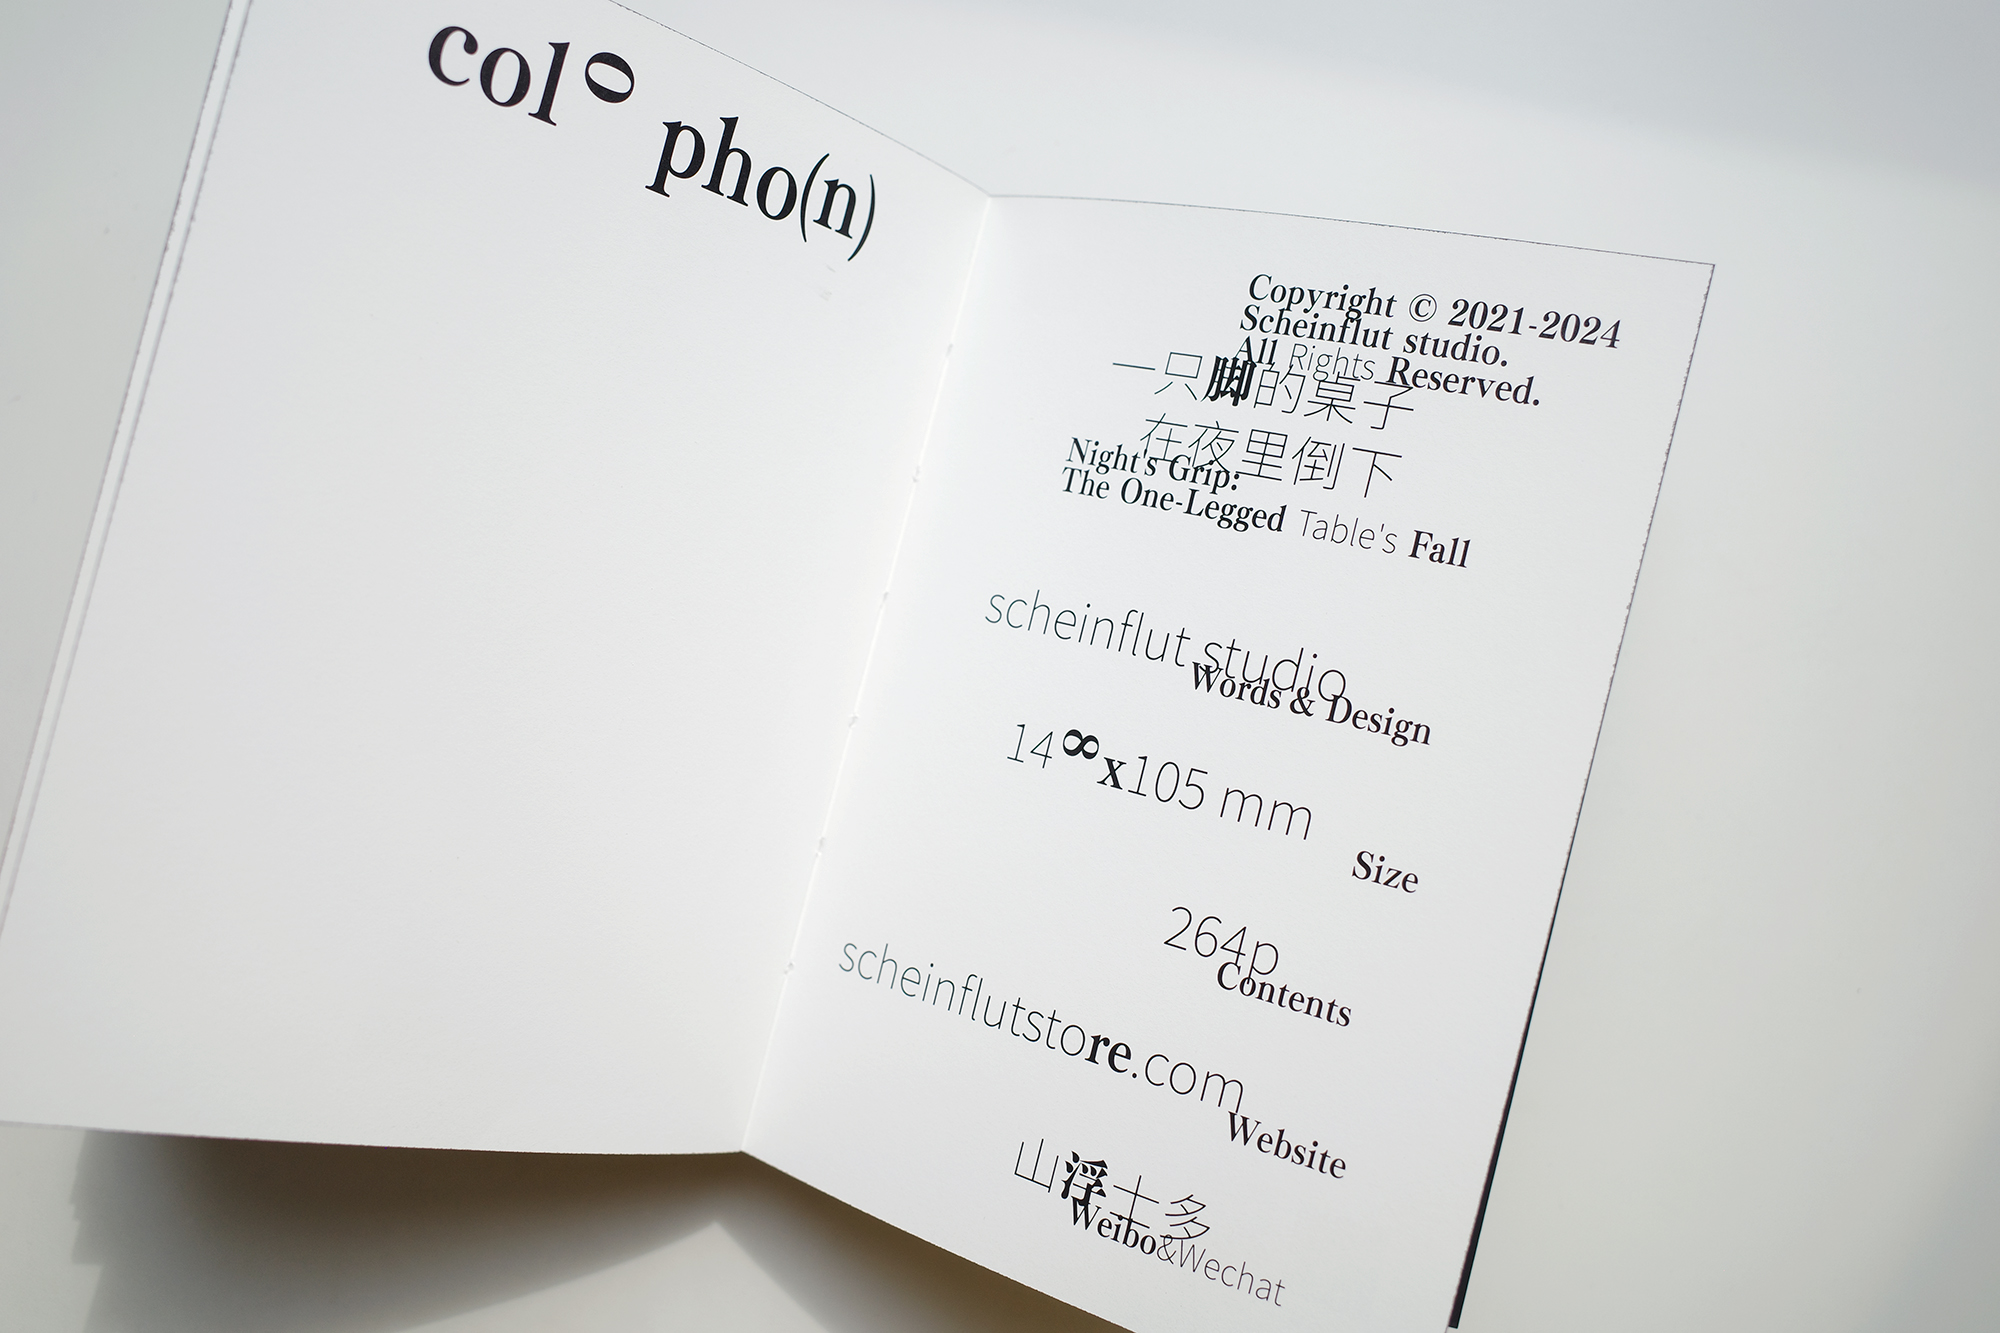 colo pho(n)
Copyright © 2021-2024
Scheinflut studio.
All Rights Reserved.
一只脚的桌子
在夜里倒下
Night's Grip:
The One-Legged Table's Fall
scheinflut studio
Words & Design
14∞x105 mm
Size
264p
Contents
scheinflutstore.com
Website
山浮士多
Weibo&Wechat